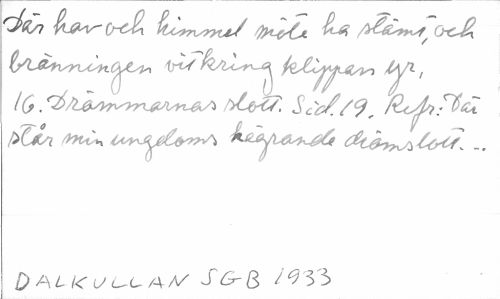 Där hav och himmel möte ha stämt, och
bränningen vit kring klippan yr,
16. Drömmarnas slott. Sid. 19. Refr: Där
står min ungdoms hägrande drömslott...
DALKULLAN SGB 1933